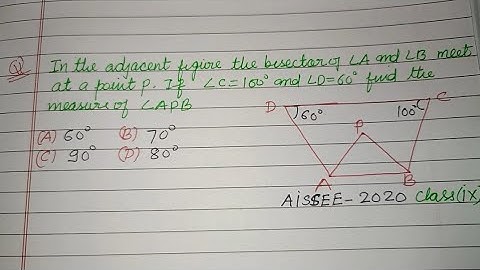 Q1 In the adjacent figure the bisector of ∠A and ∠B meet
at a point P. If ∠C=100° and ∠D=60° find the
measure of ∠APB
(A) 60° (B) 70°
(C) 90° (D) 80°
D C
60° 100°
P
A B
AiSSEE-2020 Class(ix)